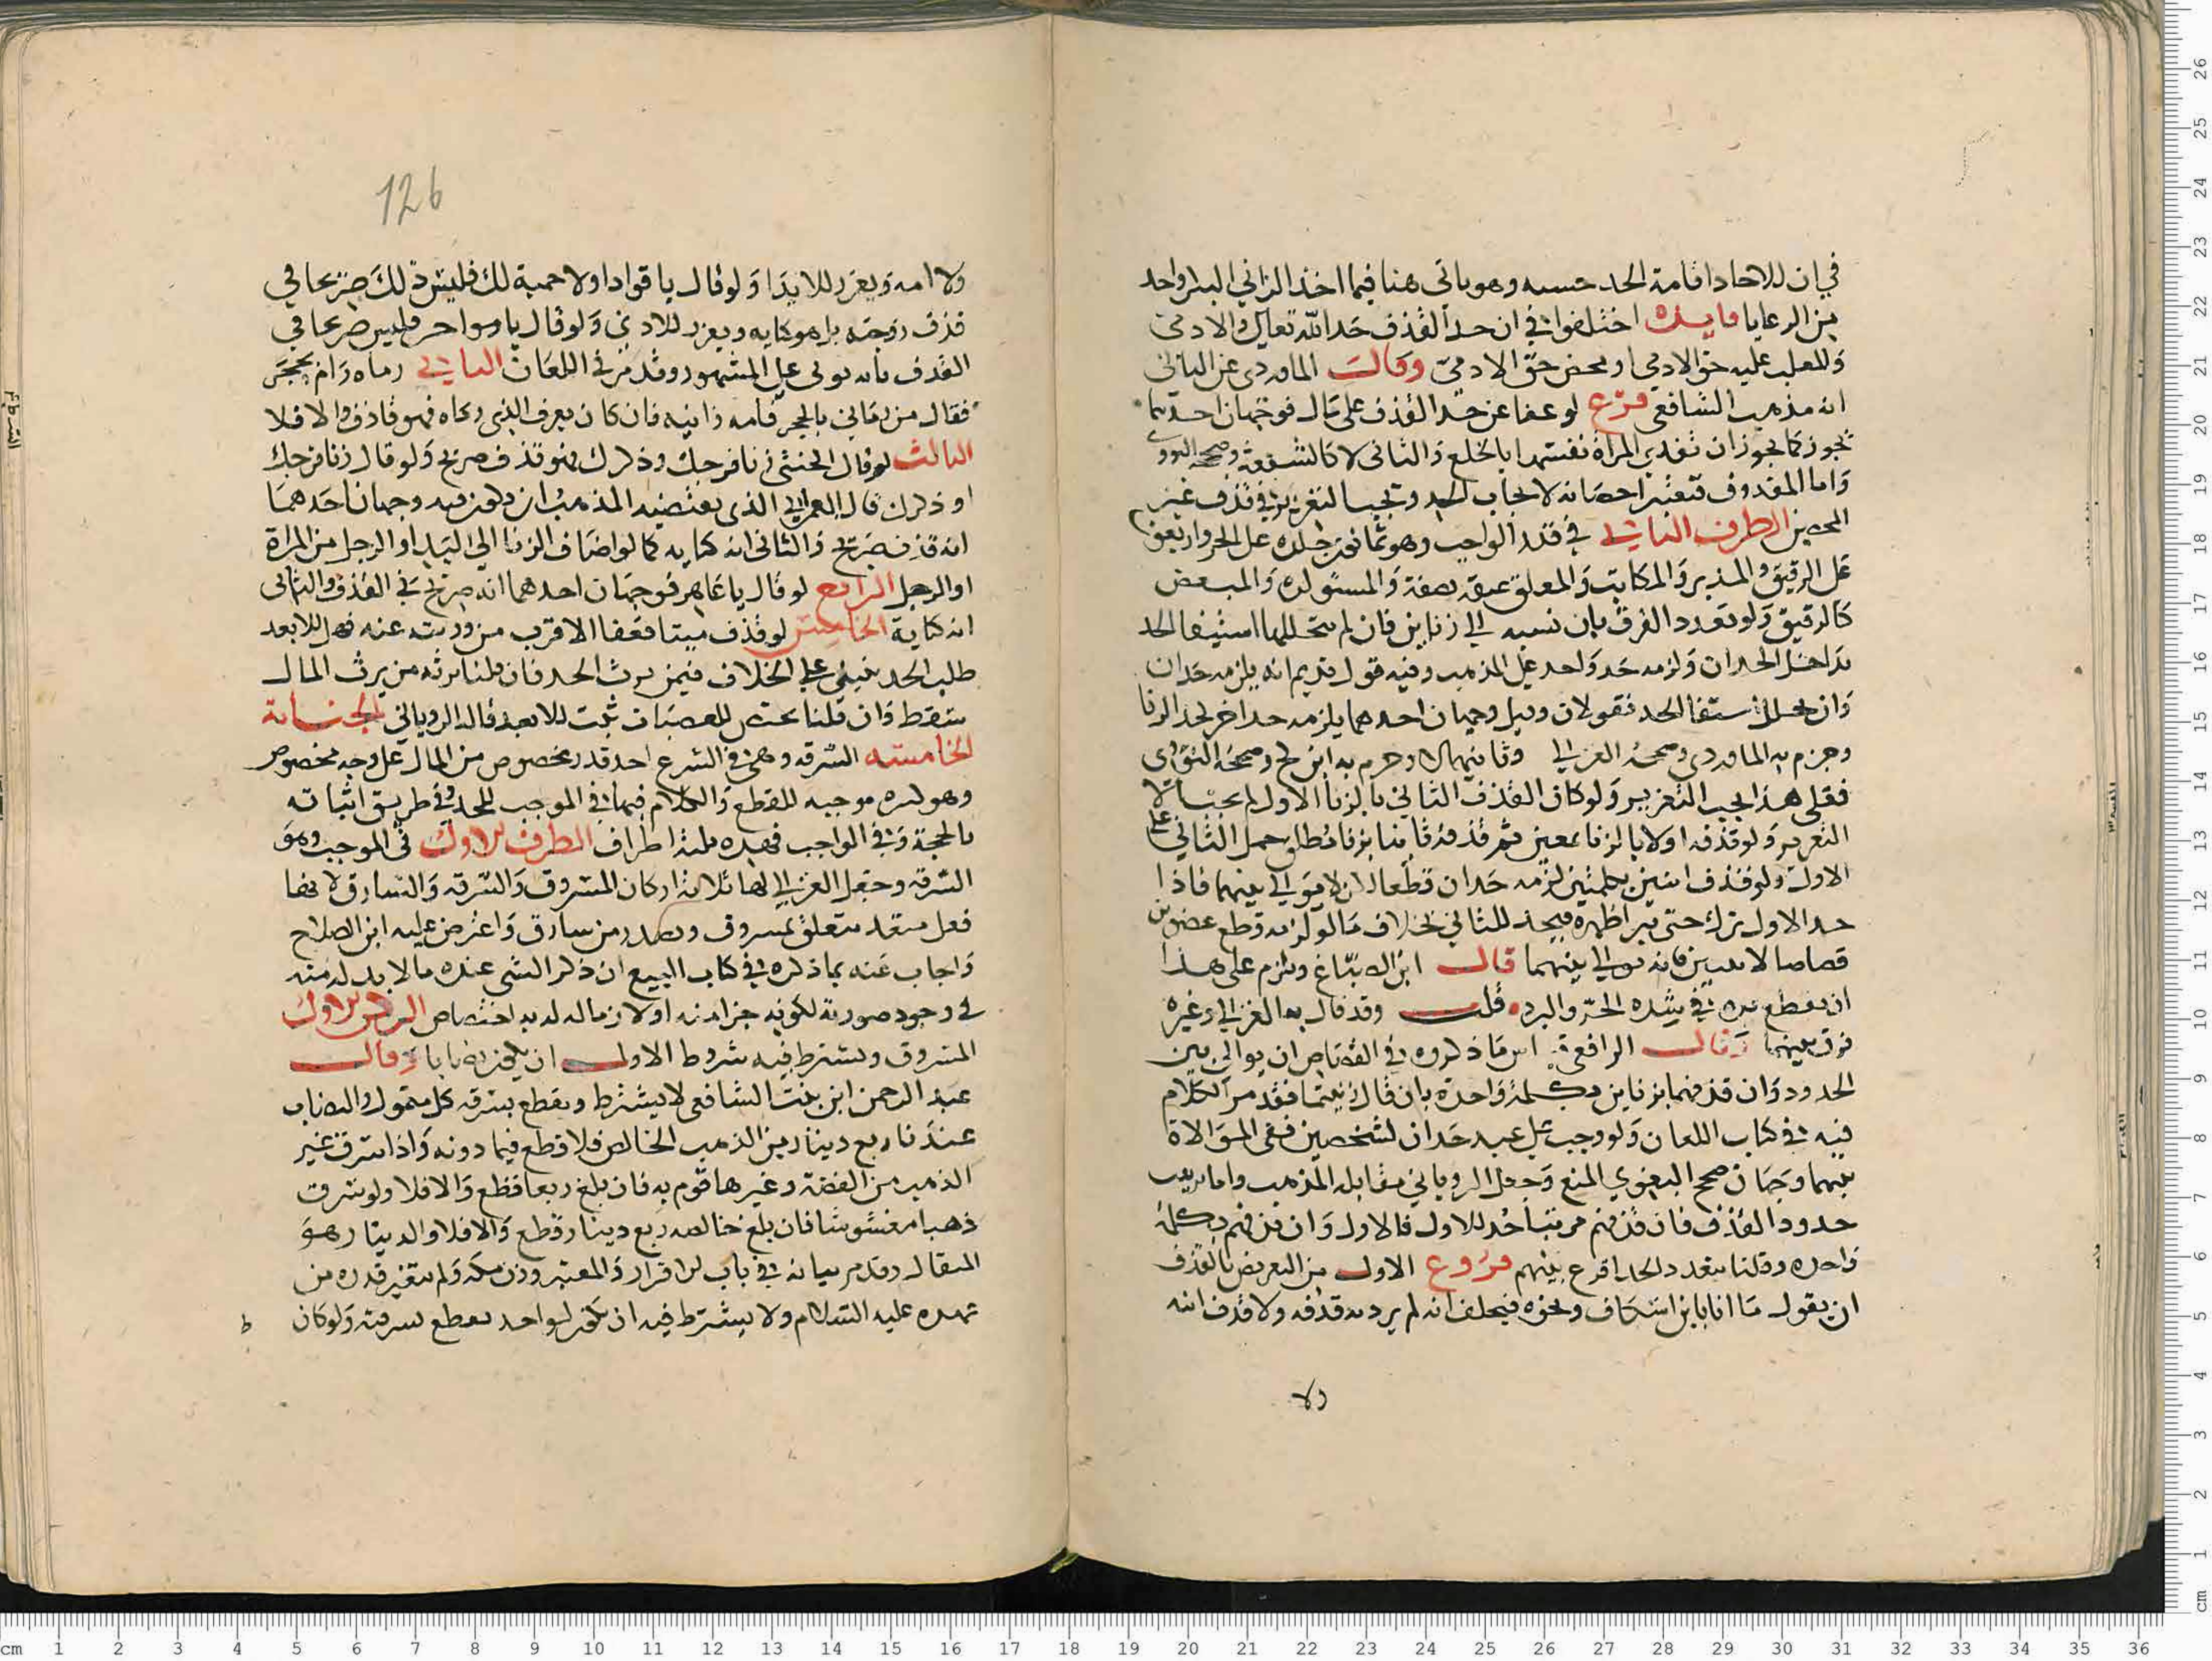 في ان للاحاد اقامة الحد حسبه وهو ياتي هنا فيما اخذ الزاني البكر واحد
من الرعايا فايده اختلفوا في ان حد القذف حد الله تعالى والادمي
والمغلب عليه حق الادمي او محض حق الادمي وقال الماوردي عن الثاني
انه مذهب الشافعي فرع لو عفا عن حد القذف على مال فوجهان احدهما
يجوز كما يجوز ان تفدي المراة نفسها بالخلع والثاني لا كالشفعة وصححه النووي
واما المقذوف فتعتبر احصانه لايجاب الحد وتجب التعزير في قذف غير
المحصن الطرف الثاني في قدر الواجب وهو ثمانون جلدة على الحر واربعون
على الرقيق والمدبر والمكاتب والمعلق عتقه بصفة والمستولده والمبعض
كالرقيق ولو تعدد القذف بان نسبه الى زنا بين فان لم يتخللها استيفا الحد
تداخل الحدان ولزمه حد واحد على المذهب وفيه قول قديم انه يلزمه حدان
وان تخلل استيفا الحد فقولان وقيل وجهان احدهما يلزمه حد اخر لحد الزنا
وجزم به الماوردي وصححه الغزالي وثانيهما لا وجزم به ابن كج وصححه النووي
فعلى هذا يجب التعزير ولو كان القذف الثاني بالزنا الاول لم يجب الا
التعزير ولو قذفه اولا بالزنا بمعين ثم قذفه ثانيا بزنا مطلق حمل الثاني على
الاول ولو قذف اثنين بكلمتين لزمه حدان قطعا لان لا يوالي بينهما فاذا
حد الاول ترك حتى يبرا ظهره فيحد للثاني بخلاف ما لو لزمه قطع عضوين
قصاصا لاثنين فانه يوالي بينهما قال ابن الصباغ ويلزم على هذا
ان يقطع يده في شدة الحر والبرد قلت وقد قال به الغزالي وغيره
فرق بينهما وقال الرافعي ما ذكروه في القصاص ان يوالي بين
الحدود وان قذفهما بزنا بين بكلمة واحدة بان قال زنيتما فقد مر الكلام
فيه في كتاب اللعان ولو وجب على عبد حدان لشخصين ففي الموالاة
بينهما وجهان صحح البغوي المنع وجعل الروياني مقابله المذهب واما ترتيب
حدود القذف فان قذفهم مرتبا حد للاول فالاول وان قذفهم بكلمة
واحدة وقلنا بتعدد الحد اقرع بينهم فروع الاول من التعريض بالقذف
ان يقول ما انا بابن اسكاف ونحوه فيحلف انه لم يرد به قذفه ولا قذف ابيه
ولا
126
ولا امه ويعزر للايذا ولو قال يا قواد او لا حمية لك فليس ذلك صريحا في
قذف زوجته بل هو كناية ويعزر للاذى ولو قال يا مواجر فليس صريحا في
القذف بانه يوتى على المشهور وقد مر في اللعان الثاني رماه رام بحجر
فقال من رماني بالحجر فامه زانيه فان كان يعرف الذي رماه فهو قاذف والا فلا
الثالث لو قال الخنثى زنا فرجك وذكرك فهو قذف صريح ولو قال زنا فرجك
او ذكرك قال العمراني الذي يقتضيه المذهب ان يكون فيه وجهان احدهما
انه قذف صريح والثاني انه كناية كما لو اضاف الزنا الى اليد او الرجل من المراة
او الرجل الرابع لو قال يا عاهر فوجهان احدهما انه صريح في القذف والثاني
انه كناية الخامس لو قذف ميتا فعفا الاقرب من ورثته عنه فهل للابعد
طلب الحد يبنى على الخلاف فيمن يرث الحد فان قلنا يرثه من يرث المال
سقط وان قلنا يختص للعصبات ثبت للابعد قاله الروياني الجناية
الخامسة السرقه وهي في الشرع اخذ قدر مخصوص من المال على وجه مخصوص
وهو كبيره موجبه للقطع والكلام فيها في الموجب للحد وفي طريق اثباته
بالحجة وفي الواجب فهذه ثلثة اطراف الطرف الاول في الموجب وهو
السرقه وجعل الغزالي لها ثلاثة اركان المسروق والسرقه والسارق لانها
فعل متعد متعلق بمسروق وتصدر من سارق واعترض عليه ابن الصلاح
واجاب عنه بما ذكره في كتاب البيع ان ذكر الشي عنده ما لا بد له منه
في وجود صورته لكونه جزا منه او لازما له لديه اختصاص الركن الاول
المسروق ويشترط فيه شروط الاول ان يكون نصابا وقال
عبد الرحمن ابن بنت الشافعي لا يشترط ويقطع بسرقه كل متمول والنصاب
عندنا ربع دينار من الذهب الخالص فلا قطع فيما دونه واذا سرق غير
الذهب من الفضة وغيرها قوم به فان بلغ ربعا قطع والا فلا ولو سرق
ذهبا مغشوشا فان بلغ خالصه ربع دينار قطع والا فلا والدينار هو
المثقال وقد مر بيانه في باب الاقرار والمعتبر وزن مكه ولم يتغير قدره من
عهده عليه السلام ولا يشترط فيه ان يكون لواحد يقطع بسرقته ولو كان